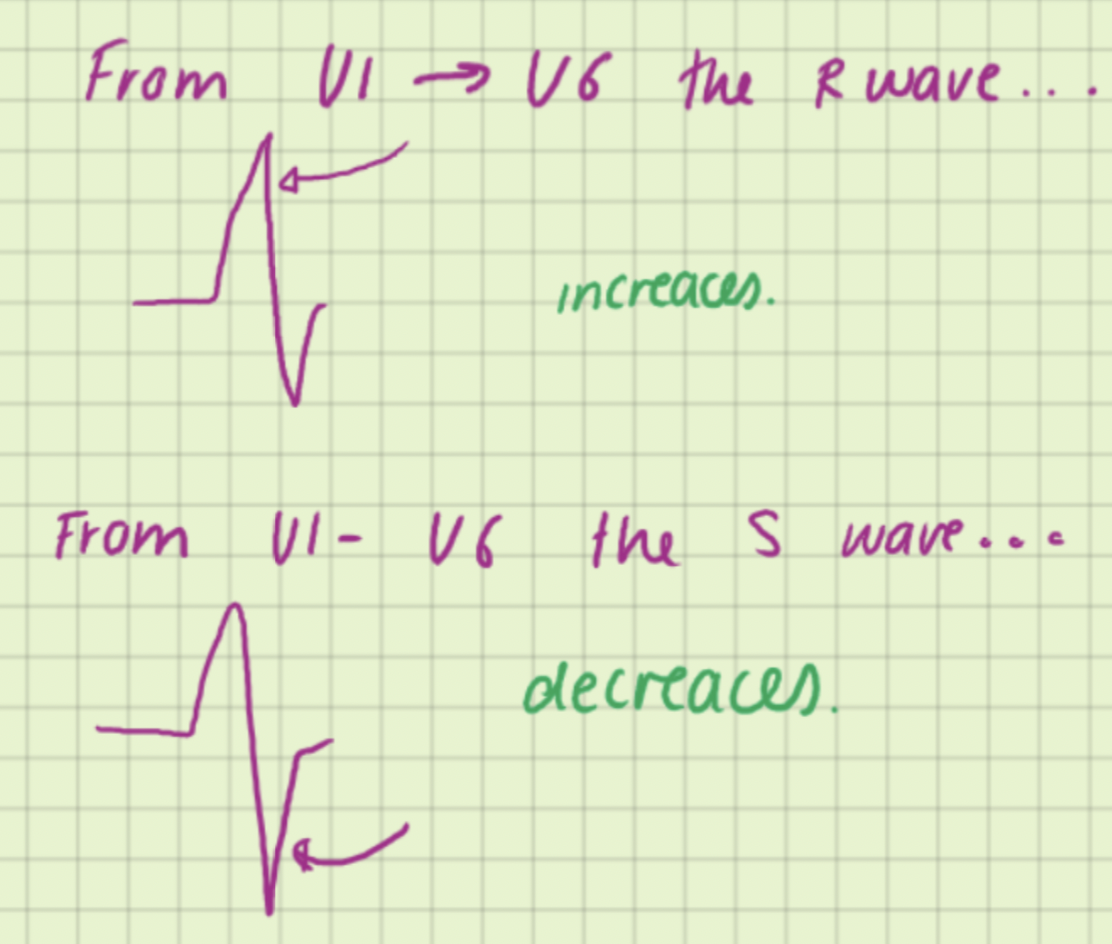 From V1 → V6 the R wave....
increaces.
From V1 - V6 the S wave....
decreaces.